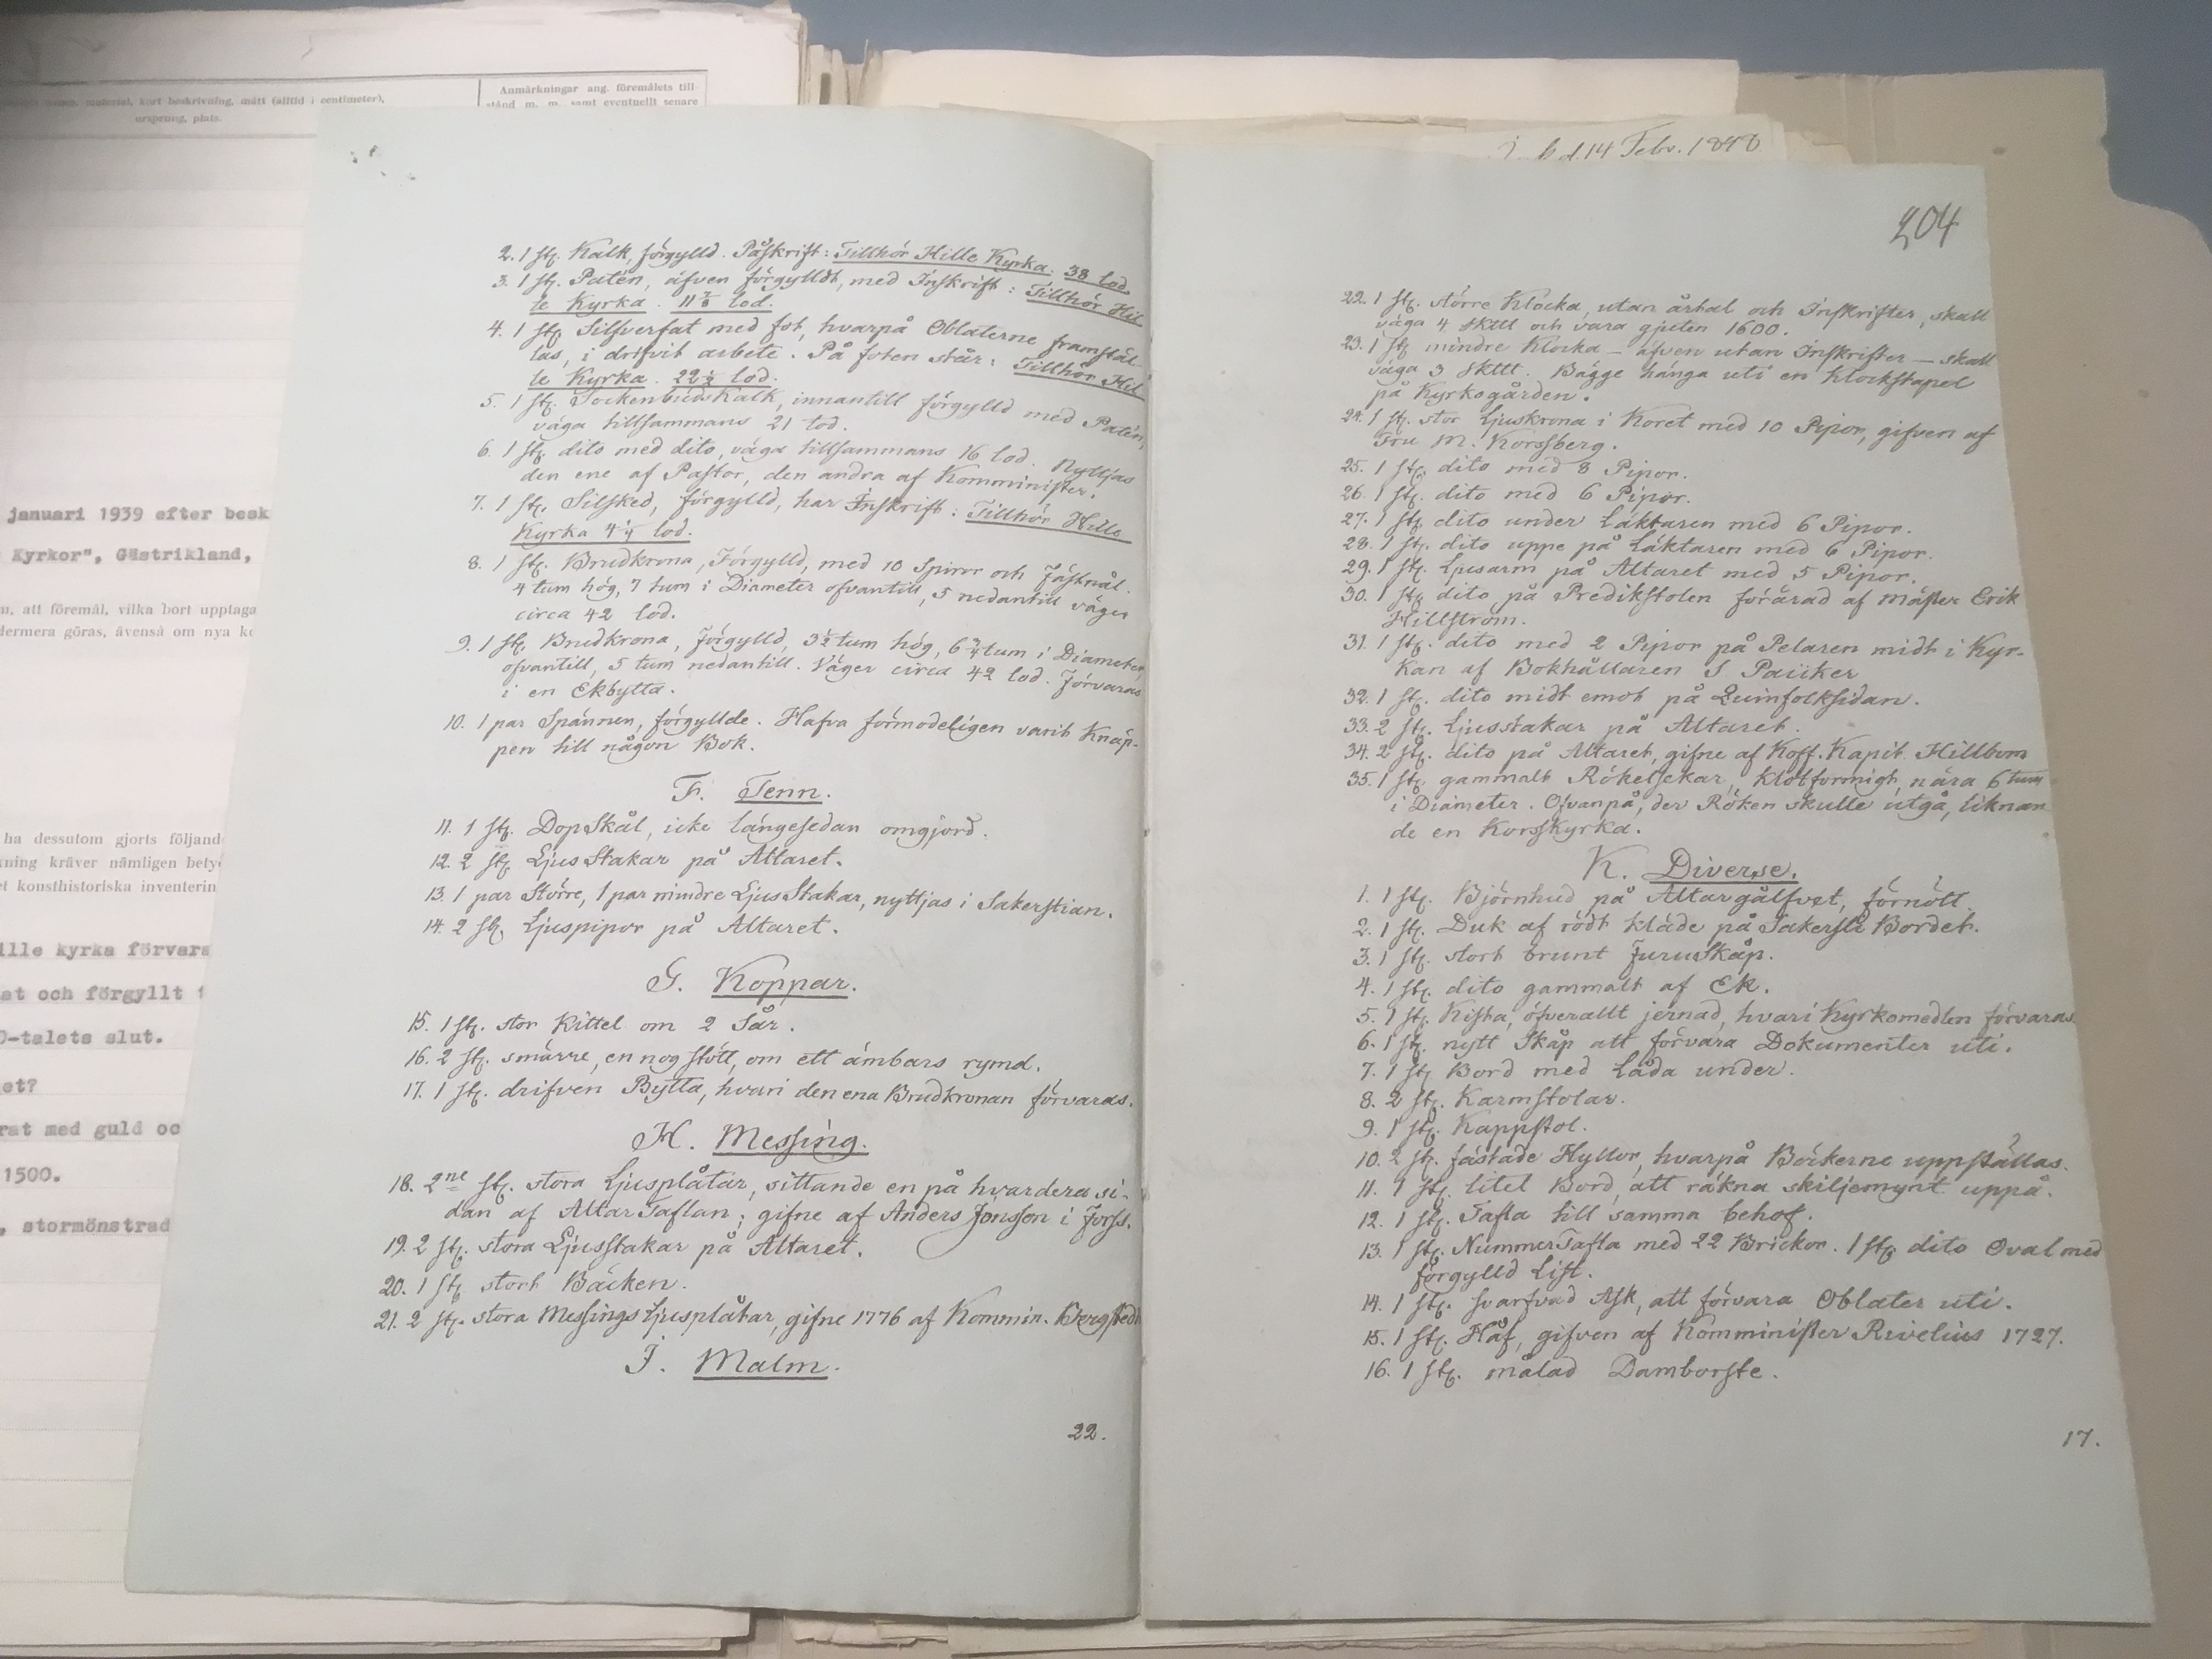 namn, material, kort beskrivning, mått (alltid i centimeter),
ursprung, plats.
Anmärkningar ang. föremålets till-
stånd m. m. samt eventuellt senare
januari 1939 efter besk
Kyrkor", Gästrikland,
att föremål, vilka bort upptaga
dermera göras, ävenså om nya
ha dessutom gjorts följand
kning kräver nämligen bety
et konsthistoriska inventerin
ille kyrka förvara
at och förgyllt
0-talets slut.
et?
rat med guld oc
1500.
, stormönstrad
d. 14 Febr. 1848
2. 1 st. Kalk, förgylld. Påskrift: Tillhör Hille Kyrka. 38 lod.
3. 1 st. Patén, äfven förgylldt, med Inskrift: Tillhör Hil
le Kyrka. 11 7/8 lod.
4. 1 st. Silfverfat med fot, hvarpå Oblaterne framstäl-
las, i drifvit arbete. På foten står: Tillhör Hil
le Kyrka. 22 1/2 lod.
5. 1 st. Sockenbuds Kalk, innantill förgylld med Patén,
väga tillsammans 21 lod.
6. 1 st. dito med dito, väga tillsammans 16 lod. Nyttjas
den ene af Pastor, den andra af Komminister.
7. 1 st. Silsked, förgylld, har Inskrift: Tillhör Hille
Kyrka 4 1/4 lod.
8. 1 st. Brudkrona, Förgylld, med 10 Spiror och Fästnål.
4 tum hög, 7 tum i Diameter ofvantill, 5 nedantill väger
circa 42 lod.
9. 1 st. Brudkrona, förgylld, 3 1/2 tum hög, 6 3/4 tum i Diameter
ofvantill, 5 tum nedantill. Väger circa 42 lod. Förvaras
i en Ekbytta.
10. 1 par Spännen, förgyllde. Hafva förmodeligen varit Knäp-
pen till någon Bok.
F. Tenn.
11. 1 st. DopSkål, icke längesedan omgjord.
12. 2 st. LjusStakar på Altaret.
13. 1 par Större, 1 par mindre LjusStakar, nyttjas i Sakerstian.
14. 2 st. Ljuspipor på Altaret.
G. Koppar.
15. 1 st. stor Kittel om 2 Sår.
16. 2 st. smärre, en nog stött, om ett ämbars rymd.
17. 1 st. drifven Bytta, hvari den ena Brudkronan förvaras.
H. Messing.
18. 2ne st. stora Ljusplåtar, sittande en på hvardera si-
dan af AltarTaflan; gifne af Anders Jonsson i Forss.
19. 2 st. stora Ljusstakar på Altaret.
20. 1 st. stort Bäcken.
21. 2 st. stora Messings Ljusplåtar, gifne 1776 af Kommin. Bergstedt
I. Malm.
22.
204
22. 1 st. större Klocka, utan årtal och Inskrifter, skall
väga 4 sk℔ och vara gjuten 1600.
23. 1 st. mindre Klocka – äfven utan Inskrifter – skall
väga 3 sk℔. Bägge hänga uti en Klockstapel
på Kyrkogården.
24. 1 st. stor Ljuskrona i Koret med 10 Pipor, gifven af
Fru M. Korssberg.
25. 1 st. dito med 8 Pipor.
26. 1 st. dito med 6 Pipor.
27. 1 st. dito under Läktaren med 6 Pipor.
28. 1 st. dito uppe på Läktaren med 6 Pipor.
29. 1 st. Ljusarm på Altaret med 5 Pipor.
30. 1 st. dito på Predikstolen förärad af Mäster Erik
Hillström.
31. 1 st. dito med 2 Pipor på Pelaren midt i Kyr-
kan af Bokhållaren S Paüker
32. 1 st. dito midt emot på Quinfolksidan.
33. 2 st. Ljusstakar på Altaret.
34. 2 st. dito på Altaret, gifne af Koff. Kapit. Hillbom
35. 1 st. gammalt Rökelsekar, Klotformigt, nära 6 tum
i Diameter. Ofvanpå, der Röken skulle utgå, liknan
de en Korskyrka.
K. Diverse.
1. 1 st. Björnhud på Altargålfvet, förnött.
2. 1 st. Duk af rödt kläde på Sakersti Bordet.
3. 1 st. stort brunt FuruSkåp.
4. 1 st. dito gammalt af Ek.
5. 1 st. Kista, öfverallt jernad, hvari Kyrkomedlen förvaras
6. 1 st. nytt Skåp att förvara Dokumenter uti.
7. 1 st. Bord med Låda under.
8. 2 st. Karmstolar.
9. 1 st. Kappstol.
10. 2 st. fästade Hyllor, hvarpå Böckerne uppställas.
11. 1 st. litel Bord, att räkna skiljemynt uppå.
12. 1 st. Tafla till samma behof.
13. 1 st. NummerTafla med 22 Brickor. 1 st. dito Oval med
förgylld List.
14. 1 st. svarfvad Ask, att förvara Oblater uti.
15. 1 st. Håf, gifven af Komminister Rivelius 1727.
16. 1 st. målad Damborste.
17.